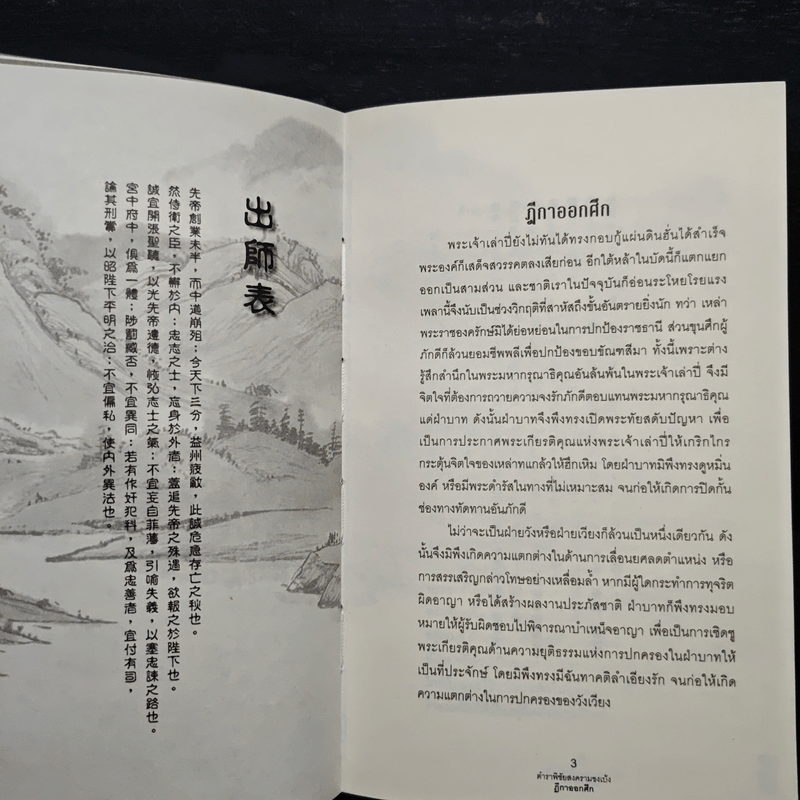 出師表
先帝創業未半，而中道崩殂；今天下三分，益州疲敝，此誠危急存亡之秋也。
然侍衛之臣，不懈於內；忠志之士，忘身於外者：蓋追先帝之殊遇，欲報之於陛下也。
誠宜開張聖聽，以光先帝遺德，恢弘志士之氣；不宜妄自菲薄，引喻失義，以塞忠諫之路也。
宮中府中，俱為一體；陟罰臧否，不宜異同：若有作奸犯科，及為忠善者，宜付有司，
論其刑賞，以昭陛下平明之治；不宜偏私，使內外異法也。
ฎีกาออกศึก
พระเจ้าเล่าปี่ยังไม่ทันได้ทรงกอบกู้แผ่นดินฮั่นได้สำเร็จ
พระองค์ก็เสด็จสวรรคตลงเสียก่อน อีกใต้หล้าในบัดนี้ก็แตกแยก
ออกเป็นสามส่วน และชาติเราในปัจจุบันก็อ่อนระโหยโรยแรง
เพลานี้จึงนับเป็นช่วงวิกฤติที่สาหัสถึงขั้นอันตรายยิ่งนัก ทว่า เหล่า
พระราชองครักษ์มิได้ย่อหย่อนในการปกป้องราชธานี ส่วนขุนศึกผู้
ภักดีก็ล้วนยอมชีพพลีเพื่อปกป้องขอบขัณฑสีมา ทั้งนี้เพราะต่าง
รู้สึกสำนึกในพระมหากรุณาธิคุณอันล้นพ้นในพระเจ้าเล่าปี่ จึงมี
จิตใจที่ต้องการถวายความจงรักภักดีตอบแทนพระมหากรุณาธิคุณ
แด่ฝ่าบาท ดังนั้นฝ่าบาทจึงพึงทรงเปิดพระทัยสดับปัญหา เพื่อ
เป็นการประกาศพระเกียรติคุณแห่งพระเจ้าเล่าปี่ให้เกริกไกร
กระตุ้นจิตใจของเหล่าทแกล้วให้ฮึกเหิม โดยฝ่าบาทมิพึงทรงดูหมิ่น
องค์ หรือมีพระดำรัสในทางที่ไม่เหมาะสม จนก่อให้เกิดการปิดกั้น
ช่องทางทัดทานอันภักดี
ไม่ว่าจะเป็นฝ่ายวังหรือฝ่ายเวียงก็ล้วนเป็นหนึ่งเดียวกัน ดัง
นั้นจึงมิพึงเกิดความแตกต่างในด้านการเลื่อนยศลดตำแหน่ง หรือ
การสรรเสริญกล่าวโทษอย่างเหลื่อมล้ำ หากมีผู้ใดกระทำการทุจริต
ผิดอาญา หรือได้สร้างผลงานประภัสชาติ ฝ่าบาทก็พึงทรงมอบ
หมายให้ผู้รับผิดชอบไปพิจารณาบำเหน็จอาญา เพื่อเป็นการเชิดชู
พระเกียรติคุณด้านความยุติธรรมแห่งการปกครองในฝ่าบาทให้
เป็นที่ประจักษ์ โดยมิพึงทรงมีฉันทาคติลำเอียงรัก จนก่อให้เกิด
ความแตกต่างในการปกครองของวังเวียง
3
ตำราพิชัยสงครามขงเบ้ง
ฎีกาออกศึก